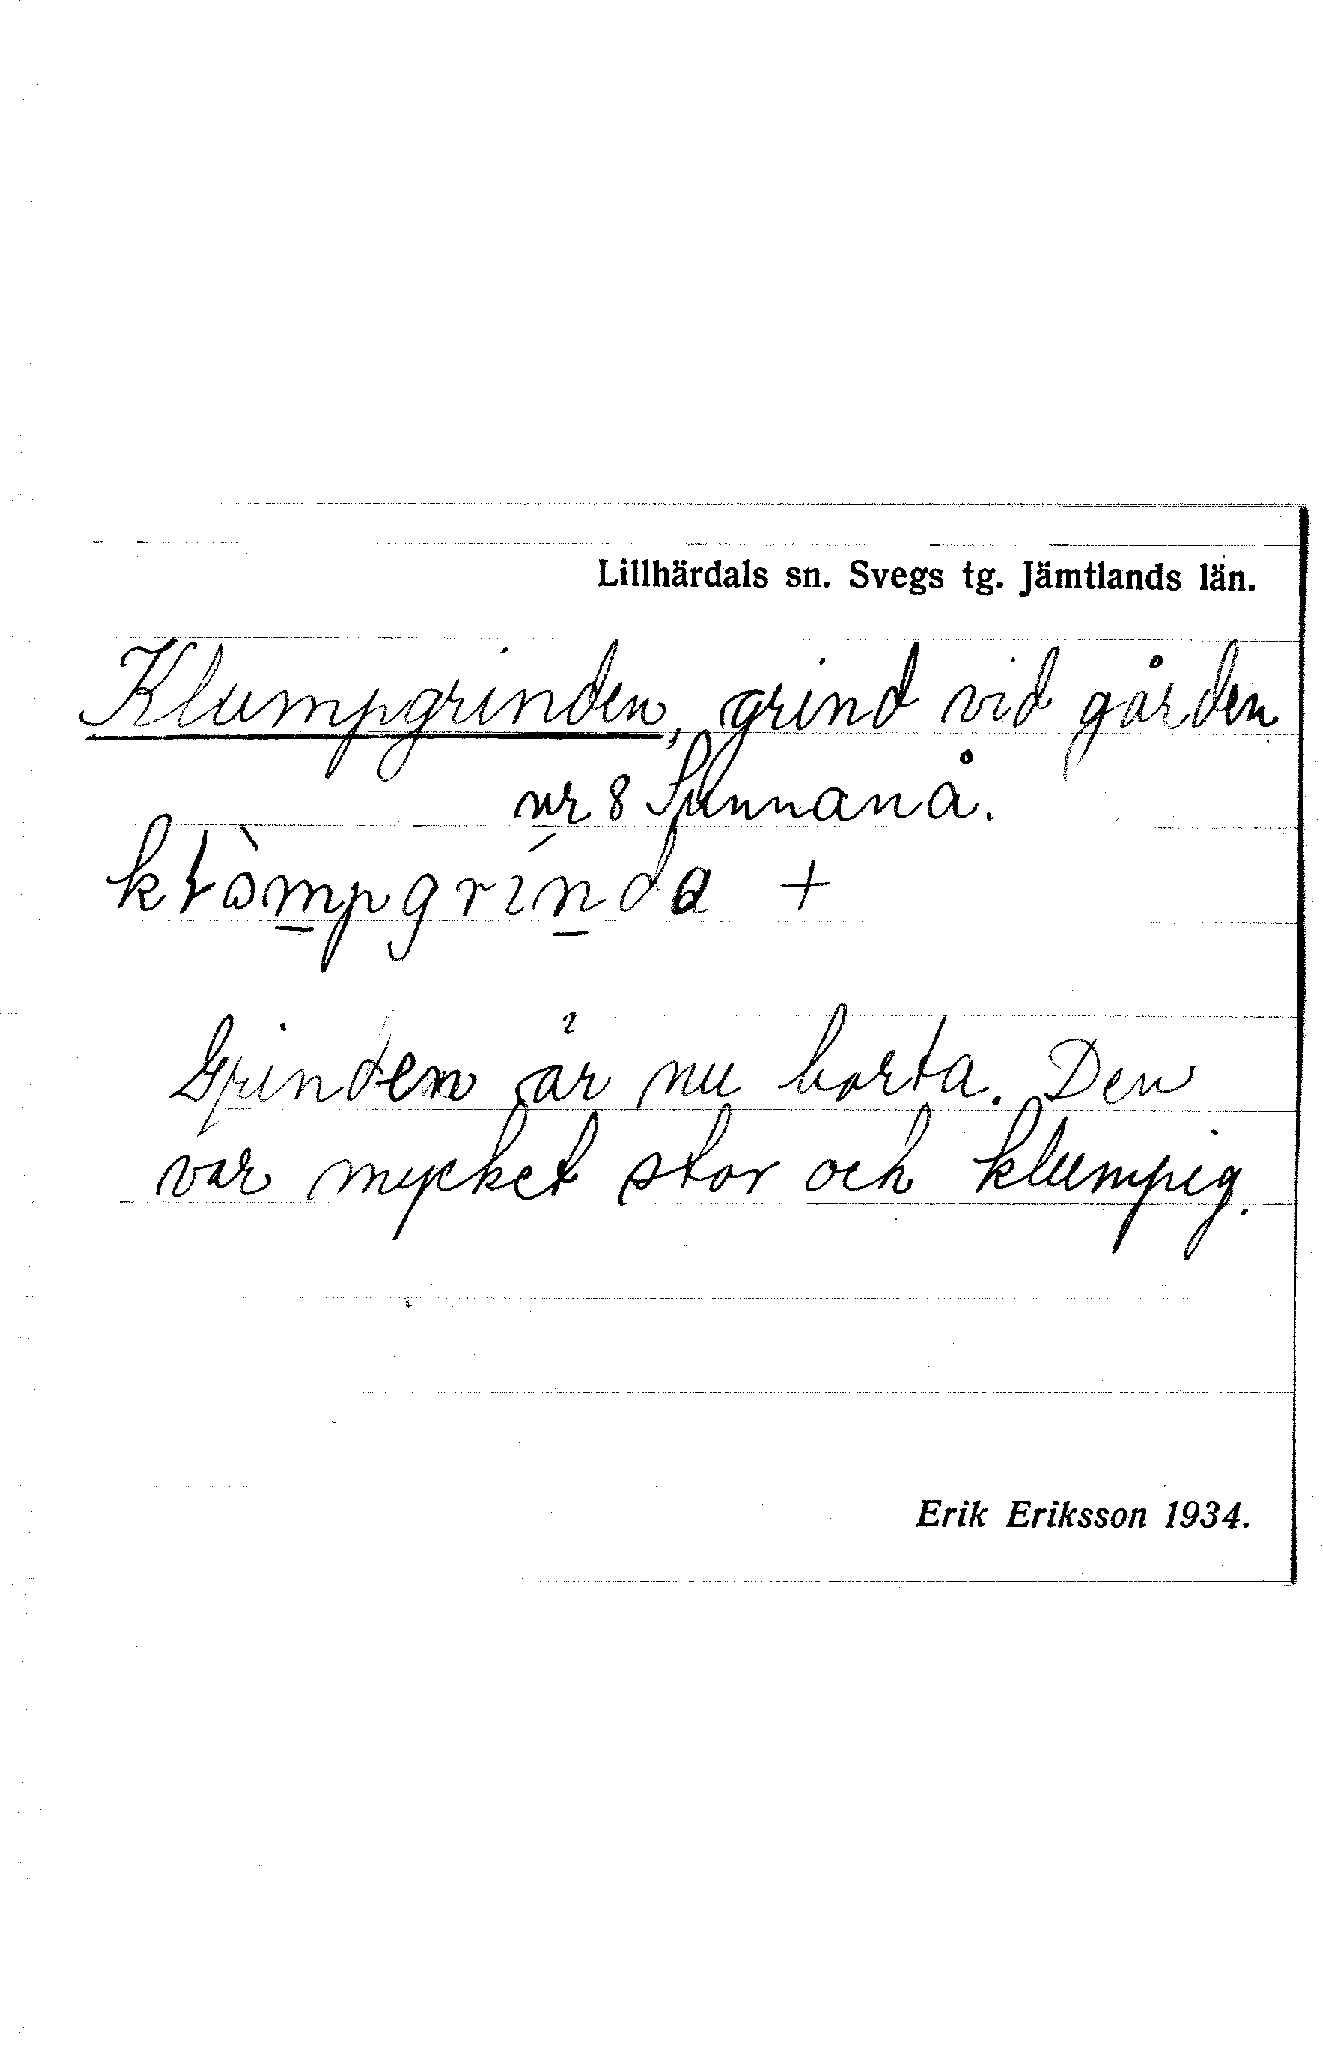 Lillhärdals sn. Svegs tg. Jämtlands län.
Klumpgrinden, grind vid gården
nr 8 Sunnanå.
kɫòm̱pgríṉda +
Grinden är nu borta. Den
var mycket stor och klumpig.
Erik Eriksson 1934.